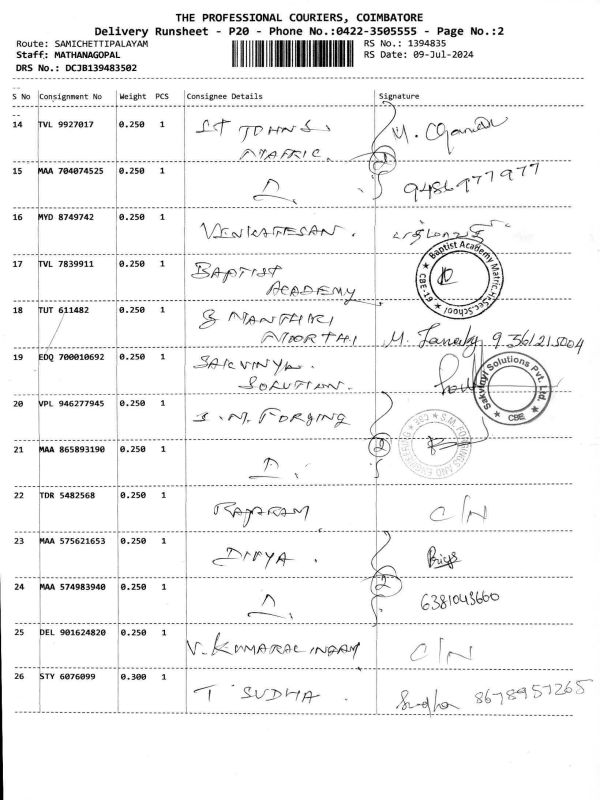 THE PROFESSIONAL COURIERS, COIMBATORE
Delivery Runsheet - P20 - Phone No.:0422-3505555 - Page No.:2
Route: SAMICHETTIPALAYAM RS No.: 1394835
Staff: MATHANAGOPAL RS Date: 09-Jul-2024
DRS No.: DCJB139483502
S No Consignment No Weight PCS Consignee Details Signature
14 TVL 9927017 0.250 1 ST JOHNS M.
MATRIC. 2
15 MAA 704074525 0.250 1 9486977977
16 MYD 8749742 0.250 1 VENKATESAN.
17 TVL 7839911 0.250 1 BAPTIST
ACADEMY
Baptist Academy Matric.Hr.Sec.School CBE-19
18 TUT 611482 0.250 1 S NANTHIKI
MOORTHI M. 9361215004
19 EDQ 700010692 0.250 1 SAKVINYA
SOLUTION.
Sakvinyi Solutions Pvt. Ltd. CBE
20 VPL 946277945 0.250 1 S.M. FORGING
S.M. FORGINGS AND ENGINEERING CBE
21 MAA 865893190 0.250 1 2
22 TDR 5482568 0.250 1 RAJARAM C/N
23 MAA 575621653 0.250 1 DIVYA . Priya
24 MAA 574983940 0.250 1 2 6381043660
25 DEL 901624820 0.250 1 V. KUMARALINGAM C/N
26 STY 6076099 0.300 1 T SUDHA . Sudha 8678957265